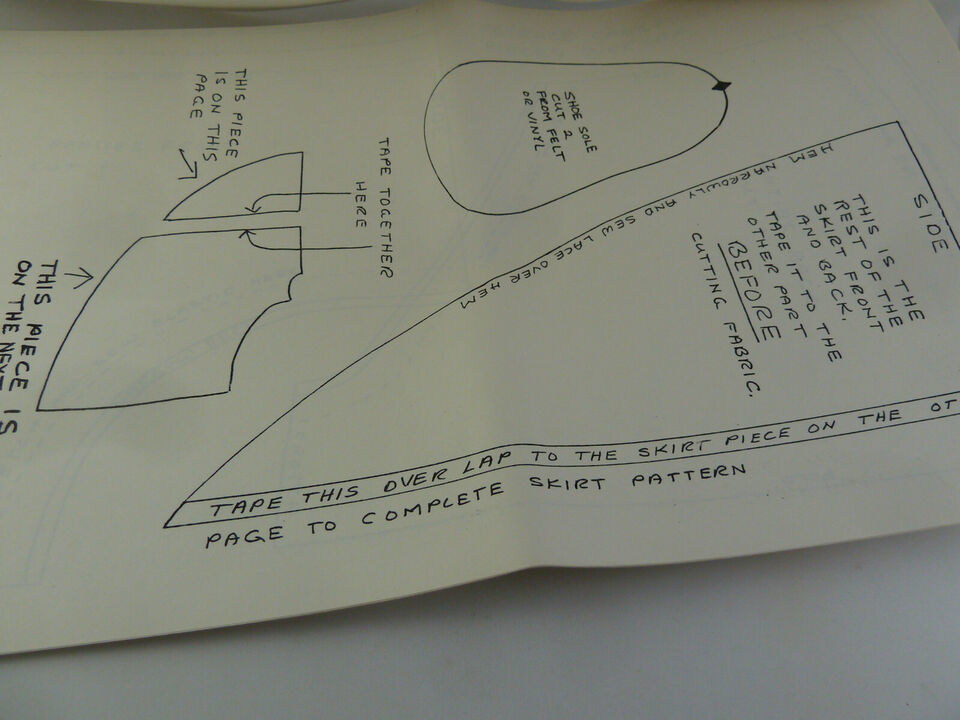 THIS PIECE
IS ON THIS
PAGE
TAPE TOGETHER
HERE
THIS PIECE IS
ON THE NEXT
SHOE SOLE
CUT 2
FROM FELT
OR VINYL
HEM NARROWLY AND SEW LACE OVER HEM
SIDE
THIS IS THE
REST OF THE
SKIRT FRONT
AND BACK.
TAPE IT TO THE
OTHER PART
BEFORE
CUTTING FABRIC.
TAPE THIS OVER LAP TO THE SKIRT PIECE ON THE OT
PAGE TO COMPLETE SKIRT PATTERN